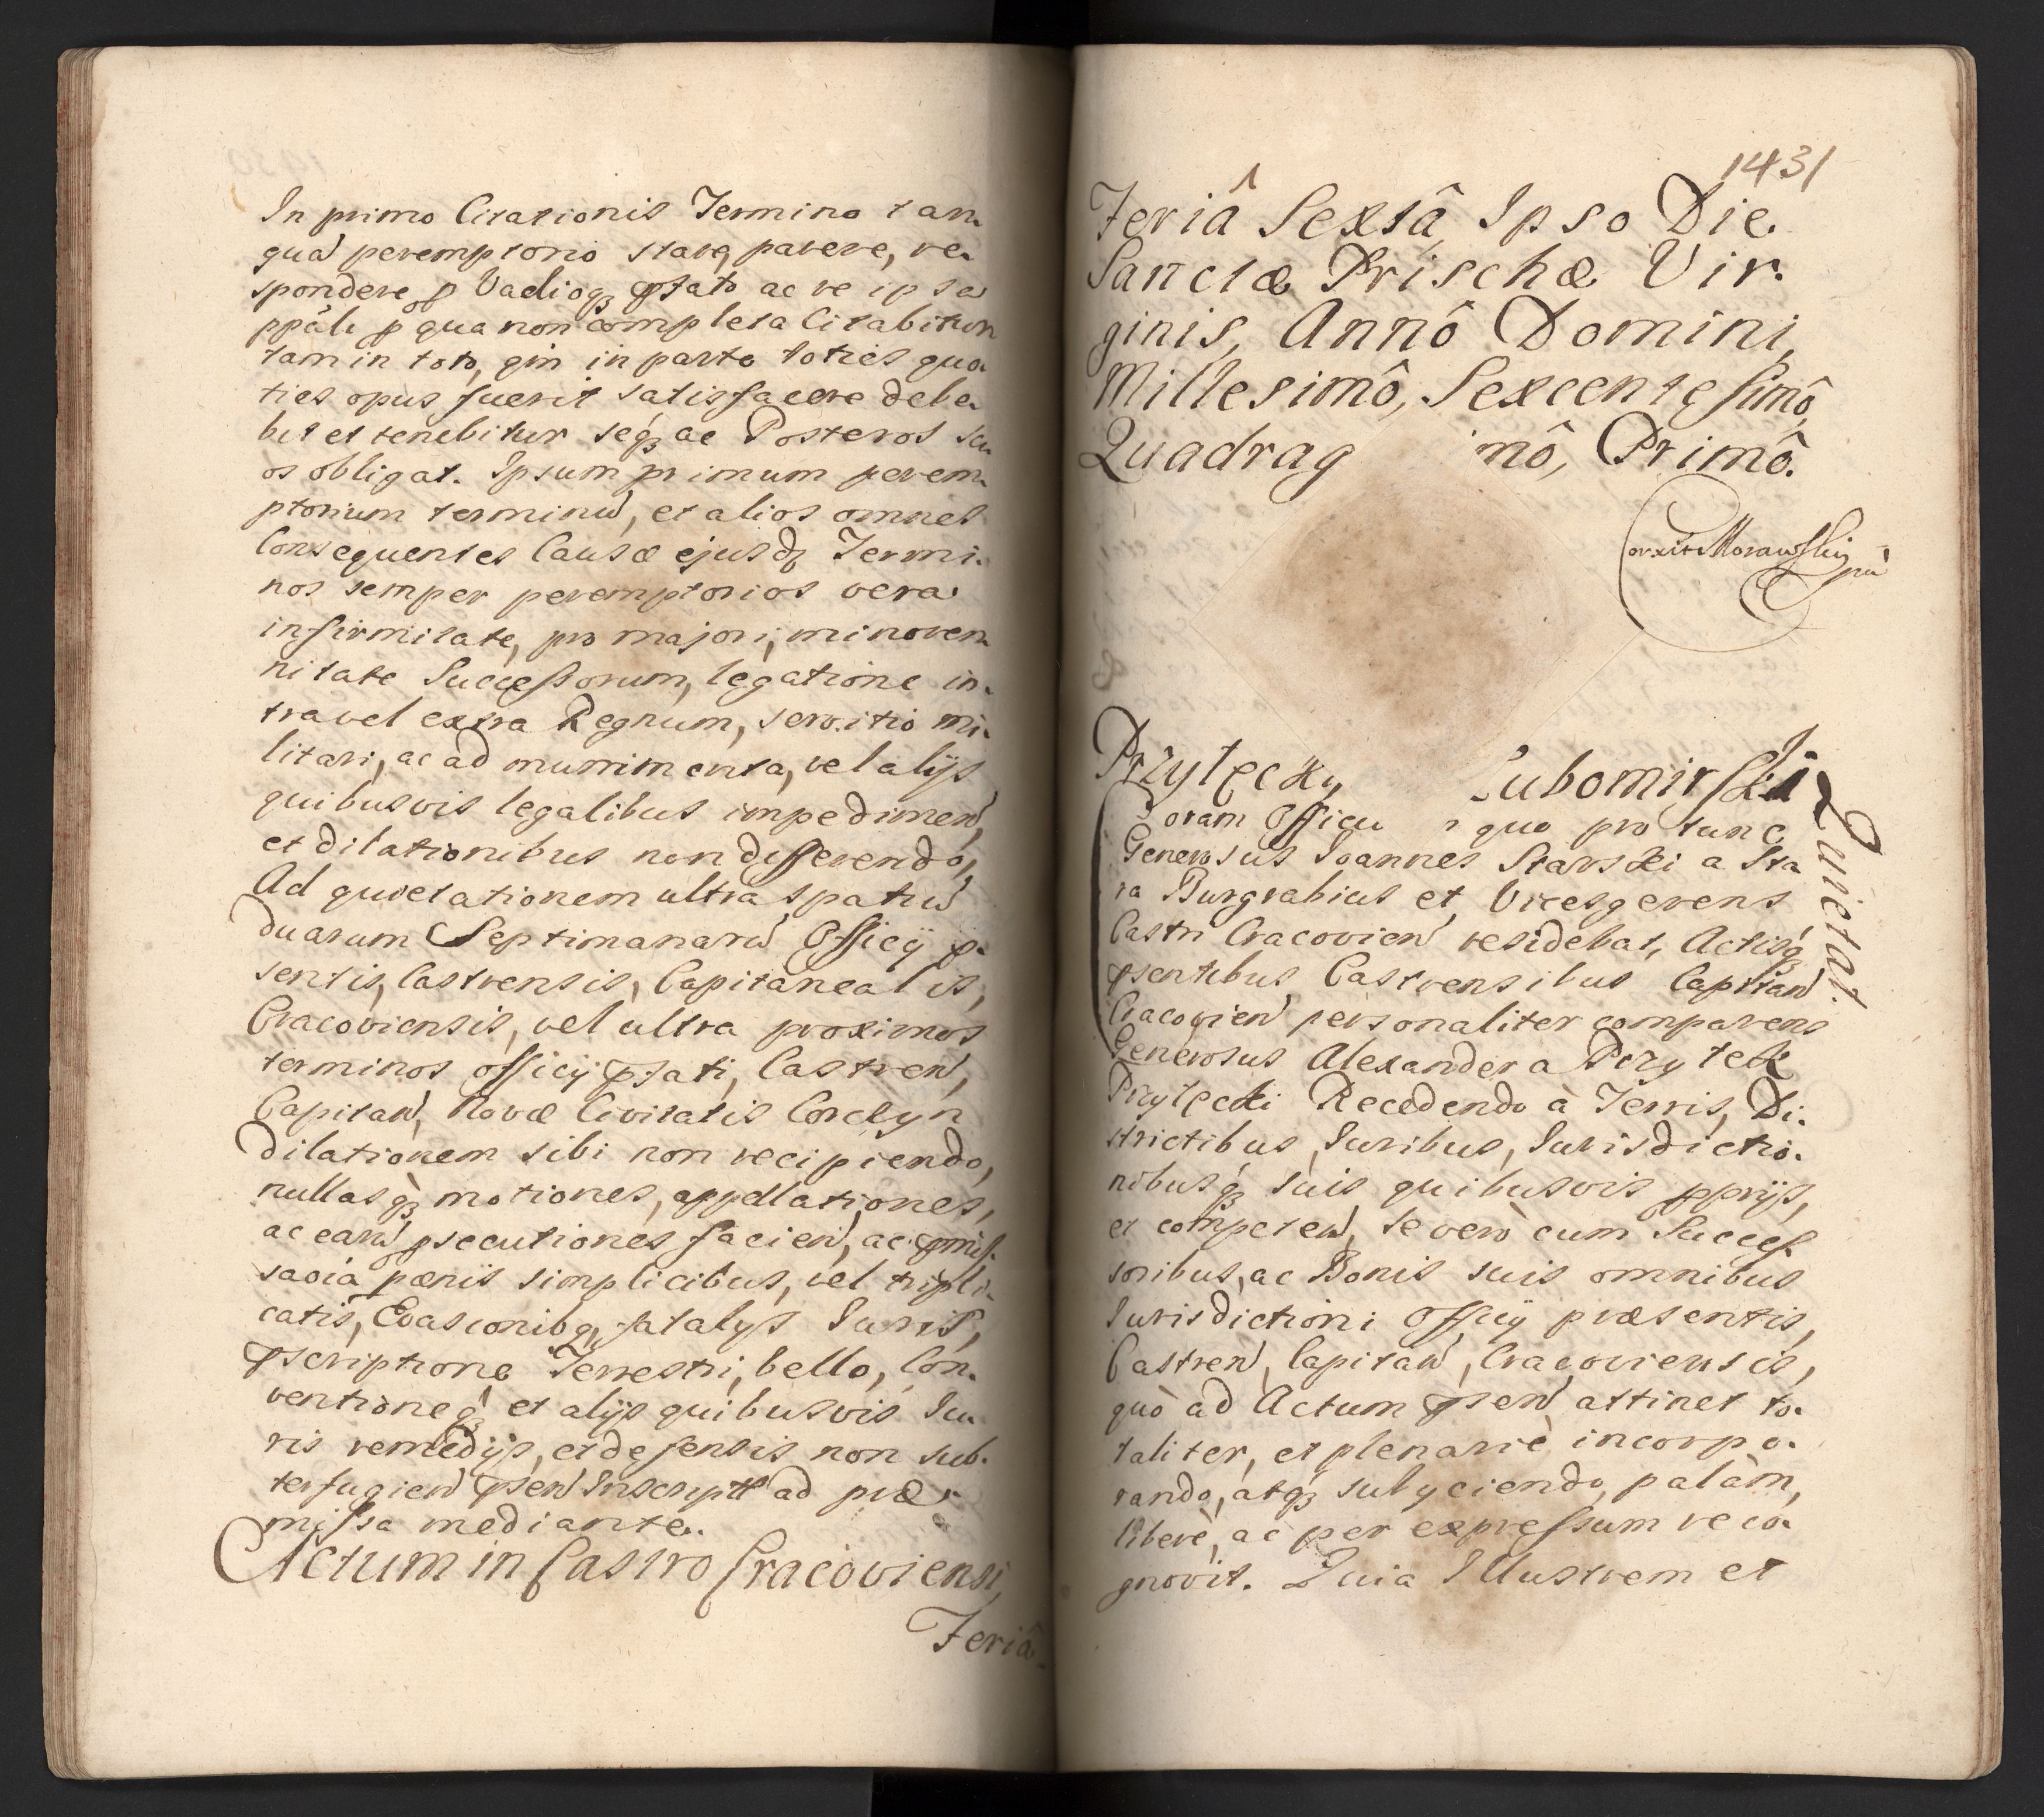 In primo Citationis Termino tan-
quã peremptorio stare, parere, re-
spondere Vadioq; ac re ipsa
qua non completa Citabitur
tam in toto, qm̃ in parte toties quo-
ties opus fuerit satisfacere debe-
bit et tenebitur seq; ac Posteros su-
os obligat. Ipsum primum perem-
ptorium terminũ, et alios omnes
Consequentes Causæ ejusdq Termi-
nos semper peremptorios vera
infirmitate, pro majori, minoren-
nitate Successorum, legatione in-
tra vel extra Regnum, servitio mi-
litari, ac ad munimenta, vel alijs
quibusvis legalibus impedimen̄,
et dilationibus non differendo,
Ad quietationem ultra spatiũ
duarum Septimanarũ Officij p-
sentis, Castrensis, Capitanealis,
Cracoviensis, vel ultra proximos
terminos officij pfati, Castren̄,
Capitan̄, Novæ Civitatis Corczyn
dilationem sibi non recipiendo,
nullasq; motiones, appellationes,
ac earũ psecutiones facien̄, ac
pœnis simplicibus, vel tripli-
catis, Evasionibq, fatalijs Juris,
pscriptione Terrestri, bello, Con-
ventioneq; et alijs quibusvis Ju-
ris remedijs, et defensis non sub-
terfugien̄ psen̄ Inscriptt ad præ-
missa mediante.
Actum in Castro Cracoviensi,
Feriâ
1431
Feriâ Sextâ Ipso Die
Sanctæ Prischæ Vir-
ginis, Annô Domini,
Millesimô, Sexcentesimô,
Quadrag mô, Primô.
Corxit Morawski mp
Przyłęcky Lubomirski
Quietat.
Coram Officio quo pro tunc
Generosus Joannes Starski a Sta-
ra Burgrabius et Vicesgerens
Castri Cracovien̄ residebat, Actisq;
psentibus Castrensibus Capitan̄
Cracovien̄ personaliter comparens
Generosus Alexander a Przyłęk
Przyłęcki Recedendo à Terris, Di-
strictibus, Juribus, Jurisdictio-
nibusq; suis quibusvis pprijs,
et competen̄, se verò cum Succes-
soribus, ac Bonis suis omnibus
Jurisdictioni Officij præsentis,
Castren̄, Capitan̄, Cracoviensis,
quò ad Actum psen̄ attinet to-
taliter, et plenariè incorpo-
rando, atq; subyciendo, palàm,
liberè, ac per expressum reco-
gnovit. Quia Illustrem et